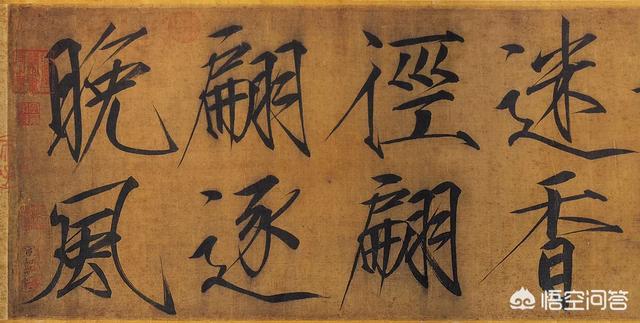 迷香
徑翩
翩逐
晚風
悟空问答